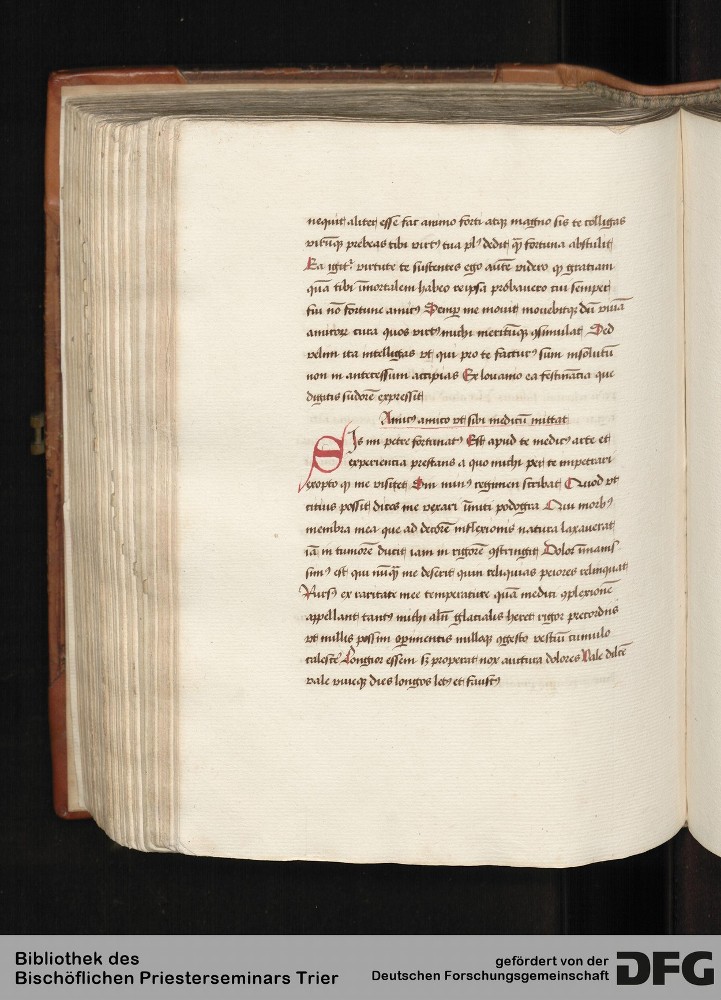 nequit aliter esse fac animo forti atqȝ magno sis te colligas
virūqȝ prebeas tibi virtꝰ tua plꝰ dedit qȝ fortuna abstulit
Ea igitᵉ virtute te sustentes ego autē videro qꝫ gratiam
quā tibi īmortalem habeo re ipsa probavero tui semper
fui nō fortune amicꝰ Semp me movit movebitqȝ dū vivā
amicorꝫ cura quos virtꝰ michi meritūqȝ ꝯsimulat Sed
velim ita intelligas vt qui pro te facturꝰ sum insolutū
non in antecessum accipias Ex lovanio ea festinātia que
digitis sudorē expressit
Amicꝰ amico vt sibi medicū mittat
Sis mi petre fortunatꝰ Est apud te medicꝰ arte et
experientia prestans a quo michi per te impetrari
exopto qꝫ me visitet Sin minꝰ regimen scribat Quod vt
citius possit dices me vexari ūniti podogra Cuiꝰ morbꝰ
membra mea que ad decorē inflexionis natura laxaverat
iā in tumorē ducit iam in rigorē ꝯstringit Dolor ūnanis
simꝰ est qui nūqȝ me deserit quin reliquias peiores relinquat
Rursꝰ ex raritate mee temperature quā medici ꝯplexionē
appellant tantꝰ michi algꝫ glacialis heret rigor precordiis
vt nullis possim opimentis nulloqȝ ꝯgesto vestiū cumulo
calescē Longior essem sꝫ properat nox auctura dolores Vale dilcē
vale viueqȝ dies longos letꝰ et faustꝰ
Bibliothek des
Bischöflichen Priesterseminars Trier
gefördert von der
Deutschen Forschungsgemeinschaft DFG